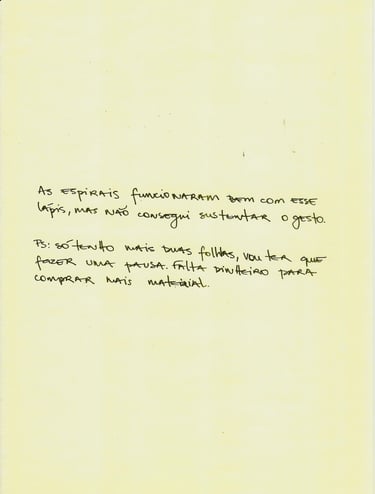 As espirais funcionaram bem com esse
lápis, mas não consegui sustentar o gesto.
Ps: só tenho mais duas folhas, vou ter que
fazer uma pausa. Falta dinheiro para
comprar mais material.